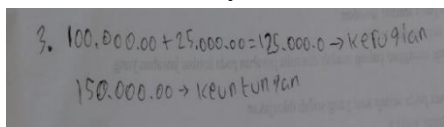 3. 100.000.00 + 25.000.00 = 125.000.0 → kerugian
150.000.00 → keuntungan